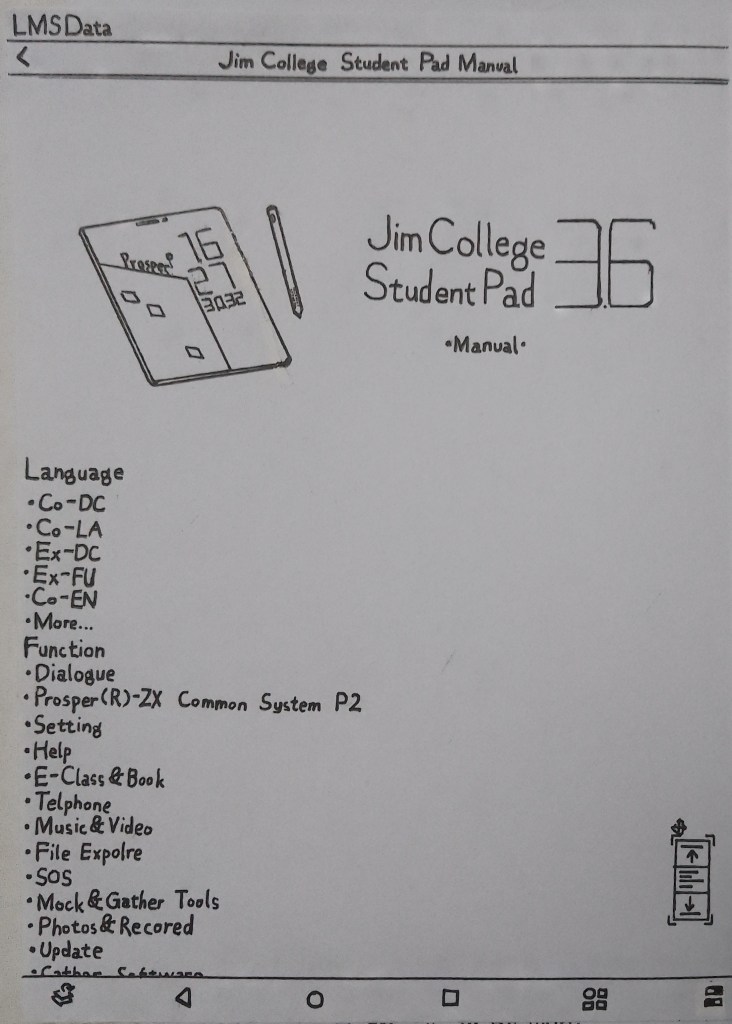 LMSData
<
Jim College Student Pad Manual
Prosper
16
27
30.32
Jim College
Student Pad
3.6
·Manual·
Language
·Co-DC
·Co-LA
·Ex-DC
·Ex-FU
·Co-EN
·More...
Function
·Dialogue
·Prosper(R)-ZX Common System P2
·Setting
·Help
·E-Class&Book
·Telphone
·Music&Video
·File Expolre
·SOS
·Mock&Gather Tools
·Photos&Recored
·Update
·Gather Software